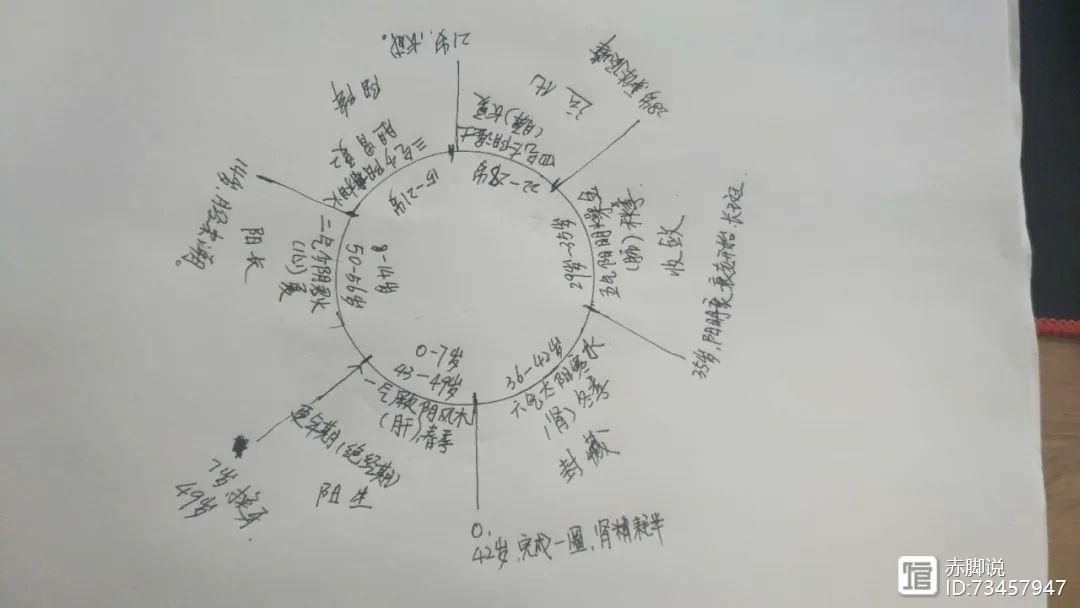 21岁,长成。
阳降
三气少阳相火
胆胃夏2
15-21岁
28岁,身体
运化
四气太阴湿土
(脾)长夏
22-28岁
五气阳明燥金
(肺)秋季
29-35岁
收敛
35岁,阳明衰,衰老开始.长斑
36-42岁
六气太阳寒水
(肾)冬季
封藏
0.
42岁,完成一圈,肾精耗半
0-7岁
43-49岁
一气厥阴风木
(肝)春季
更年期(绝经期)
阳生
7岁,换牙
49岁
8-14岁
50-56岁
二气少阴君火
(心)夏
阳长
14岁,月经来潮。
赤脚说
ID:73457947